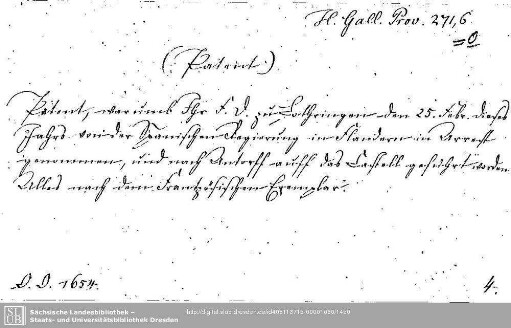 H. Gall. Prov. 271,6
=0
(Patent).
Patent, warumb Ihr F. D. zu Lothringen den 25. Febr. dieses
Jahrs von der Spanischen Regierung in Flandern in Arrest
genommen, und nach Antorff auff das Castell geführt worden
Alles nach dem Frantzösischen Exemplar.
O. O. 1654.
4.
Sächsische Landesbibliothek –
Staats- und Universitätsbibliothek Dresden